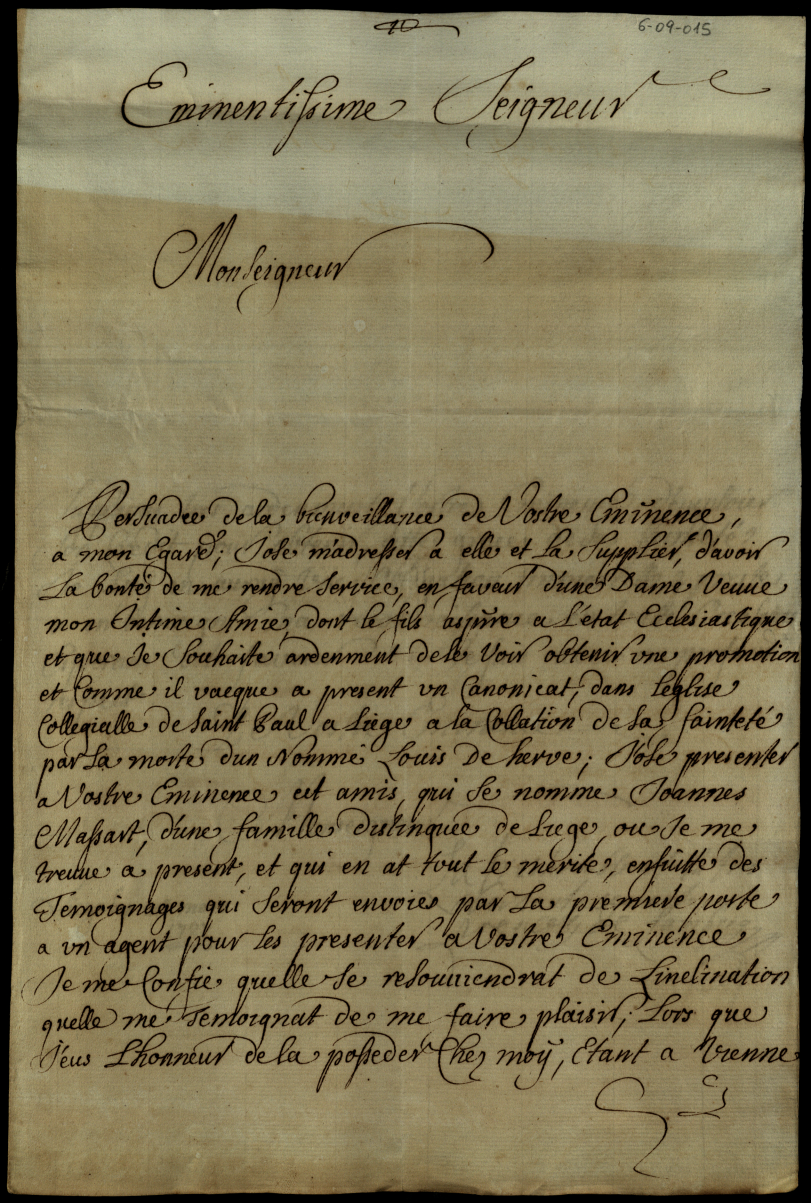 10
6-09-015
Eminentissime Seigneur
Monseigneur
Persuadée de la bienveillance de Vostre Eminence,
a mon Egard; Jose m'adresser a elle et La Supplier, d'avoir
La bonté de me rendre Service, en faveur d'une Dame Veuue
mon Intime Amie, dont le fils aspire a L'état Ecclesiastique
et que Je Souhaite ardenment dele Voir obtenir vne promotion
et Comme il vacque a present vn Canonicat, dans Leglise
Collegialle de Saint Paul a Liege a la Collation de Sa Sainteté
par La morte dun Nommé Louis De herve; J'ose presenter
a Vostre Eminence cet amis, qui Se nomme Joannes
Massart, d'une famille distinquée de Liege, ou Je me
treuue a present, et qui en at tout Le merite, ensuitte des
Temoignages qui Seront envoies par La premiere poste
a vn agent pour Les presenter a Vostre Eminence
Je me Confie quelle Se resouuiendrat de Linclination
quelle me Temoignat de me faire plaisir, Lors que
J'eus Lhonneur de la posseder Chez moÿ, Etant a Vienne